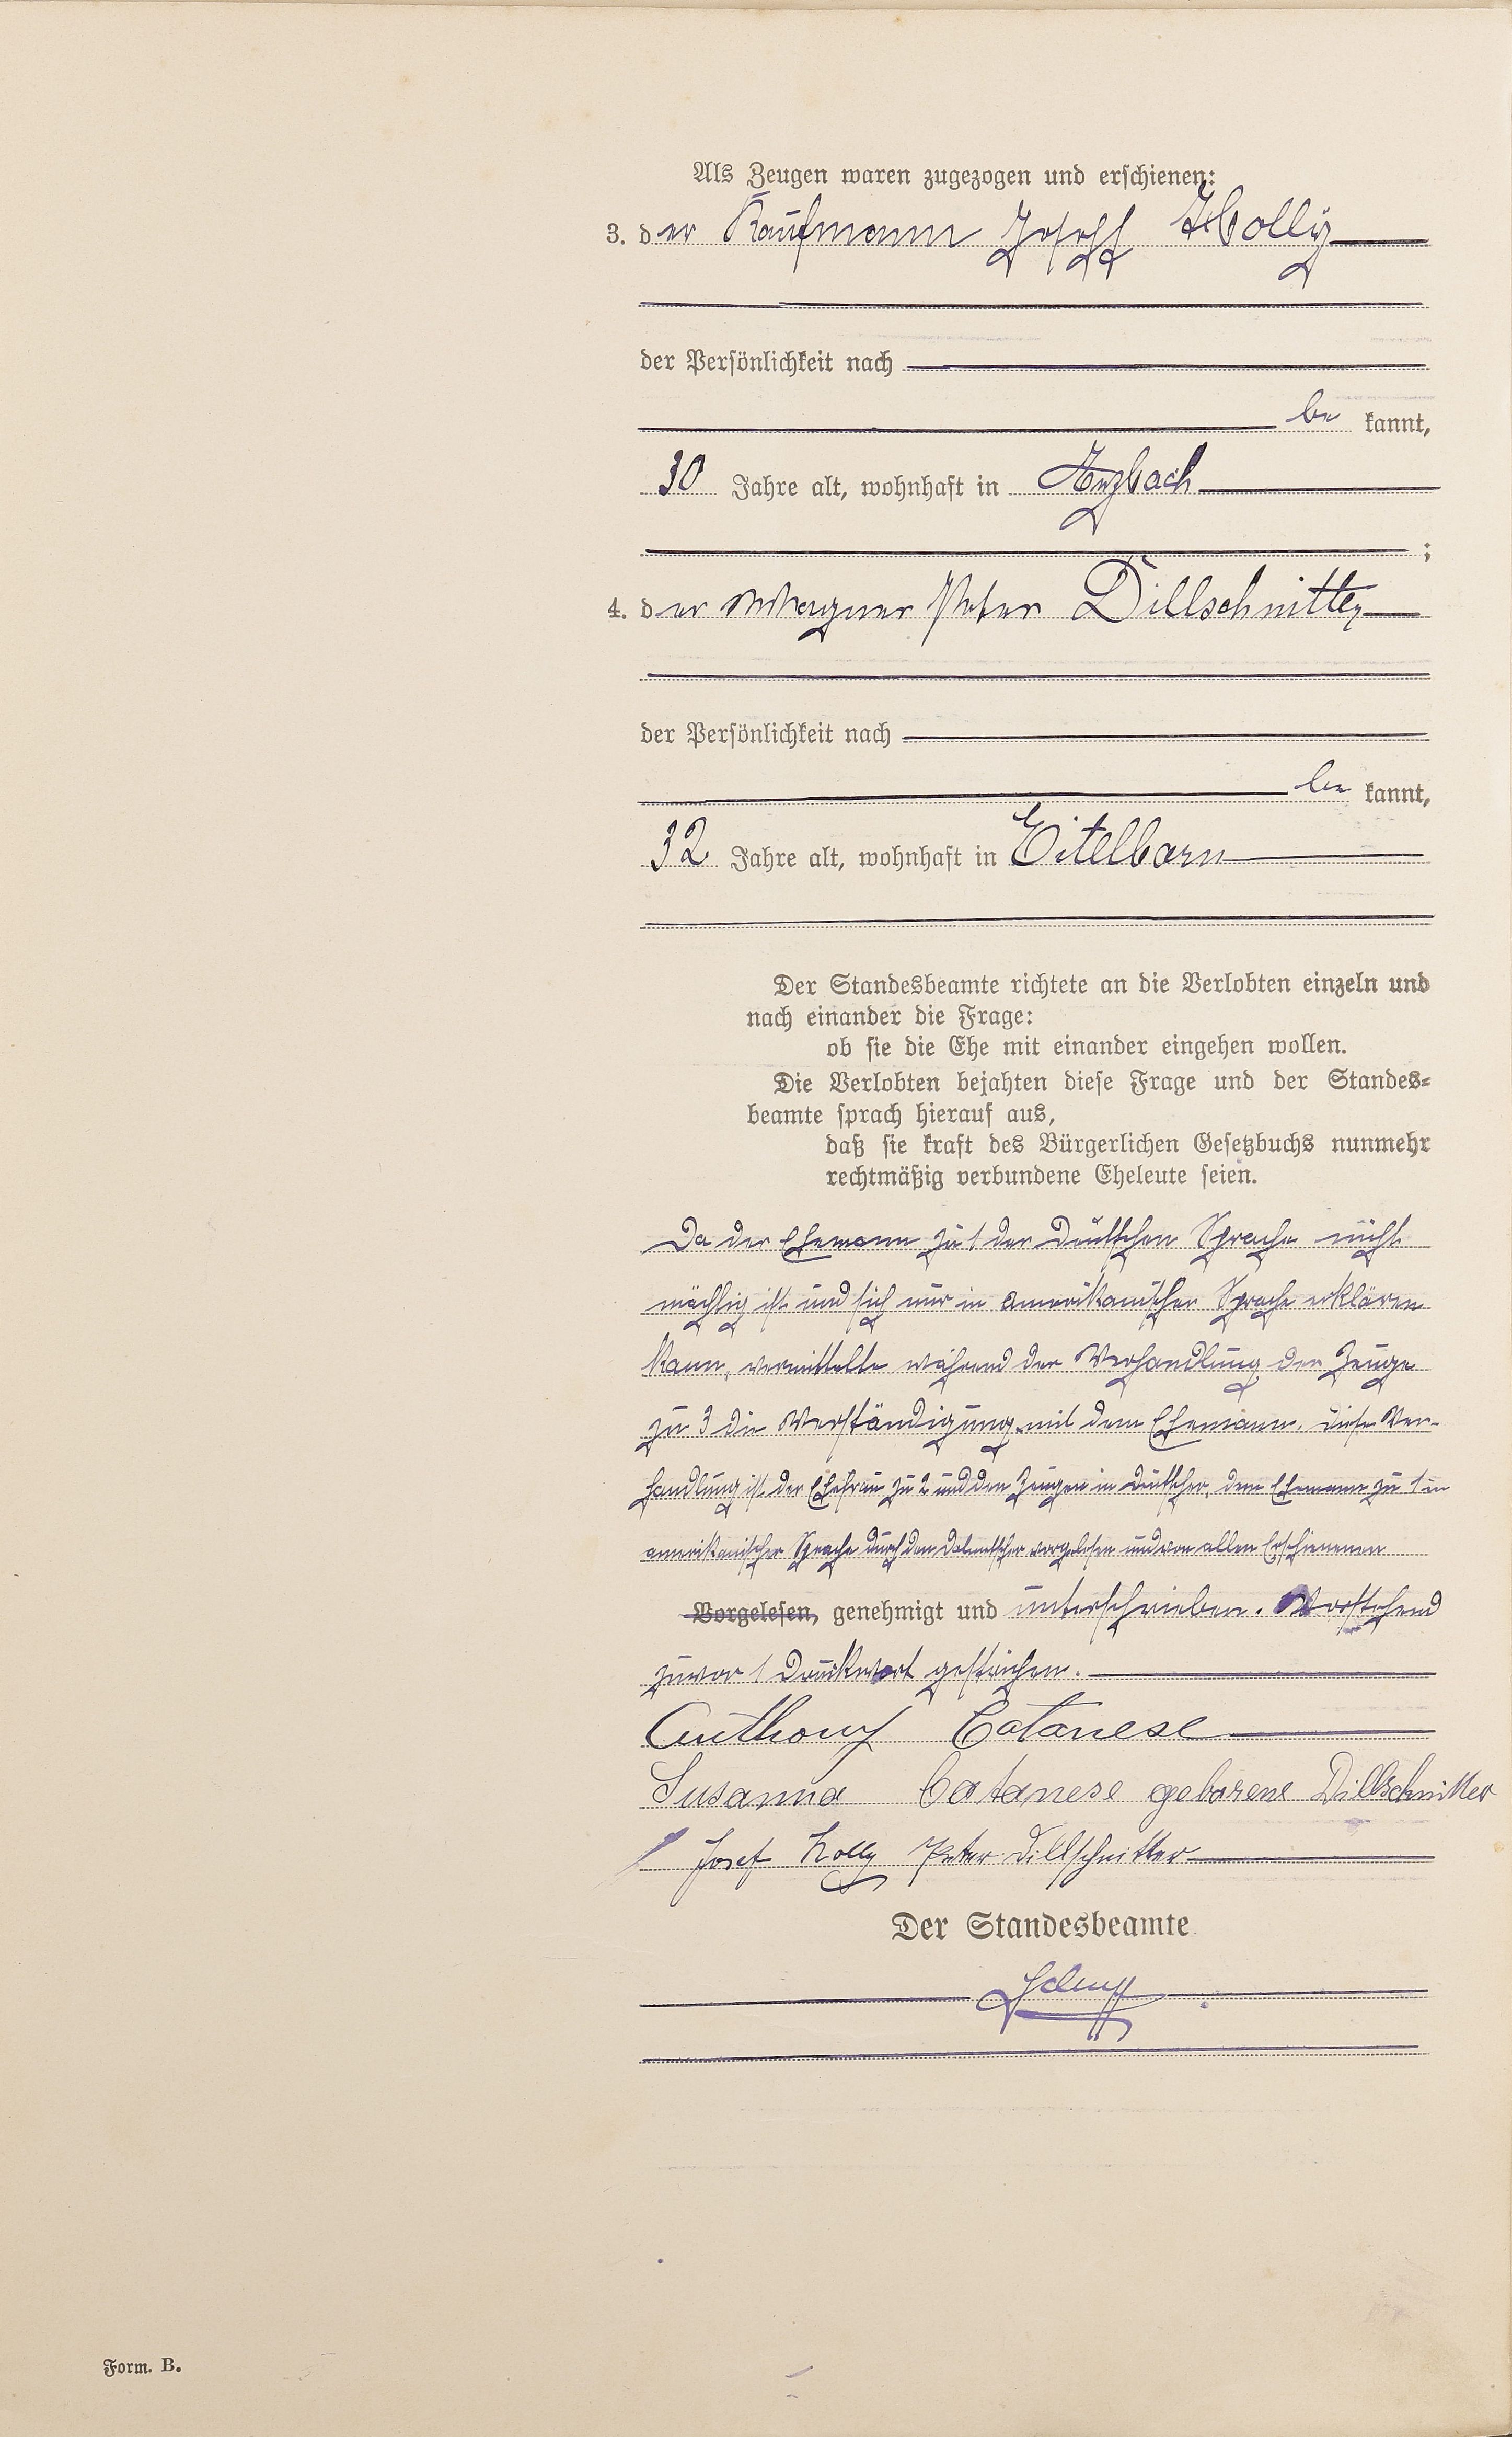 Als Zeugen waren zugezogen und erschienen:
3. der Kaufmann Joseph Holly
der Persönlichkeit nach
be kannt,
30 Jahre alt, wohnhaft in Arzbach
;
4. der Wagner Peter Dillschnitter
der Persönlichkeit nach
be kannt,
32 Jahre alt, wohnhaft in Eitelborn
Der Standesbeamte richtete an die Verlobten einzeln und
nach einander die Frage:
ob sie die Ehe mit einander eingehen wollen.
Die Verlobten bejahten diese Frage und der Standes-
beamte sprach hierauf aus,
daß sie kraft des Bürgerlichen Gesetzbuchs nunmehr
rechtmäßig verbundene Eheleute seien.
Da der Ehemann zu 1 der Deutschen Sprache nicht
mächtig ist und sich nur in amerikanischer Sprache erklären
kann, vermittelte während der Verhandlung der Zeuge
zu 3 die Verständigung mit dem Ehemann. Diese Ver-
handlung ist der Ehefrau zu 2 und den Zeugen in Deutscher, dem Ehemann zu 1 in
amerikanischer Sprache durch den Dolmetscher vorgelesen und von allen Erschienenen
Vorgelesen, genehmigt und unterschrieben. Vorstehend
zuvor 1 Druckwort gestrichen.
Anthony Catanese
Susanna Catanese geborene Dillschnitter
Josef Holly Peter Dillschnitter
Der Standesbeamte
Form. B.